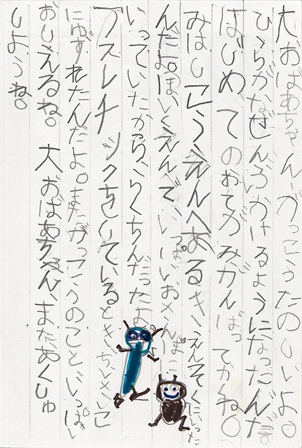 大おばあちゃんがっこうたのしいよ。
ひらがなぜんぶかけるようになったんだ
はじめてのおてがみがんばってかくね。
みはしこうえんへあるきえんそくにいった
んだよ。ほいくえんでいっぱいおさんぽ
いっていたかららくちんだったよ。
アスレチックをしているとき
にゆずれたんだよ。またがっこうのこといっぱい
おしえるね。大おばあちゃんまたあくしゅ
しようね。